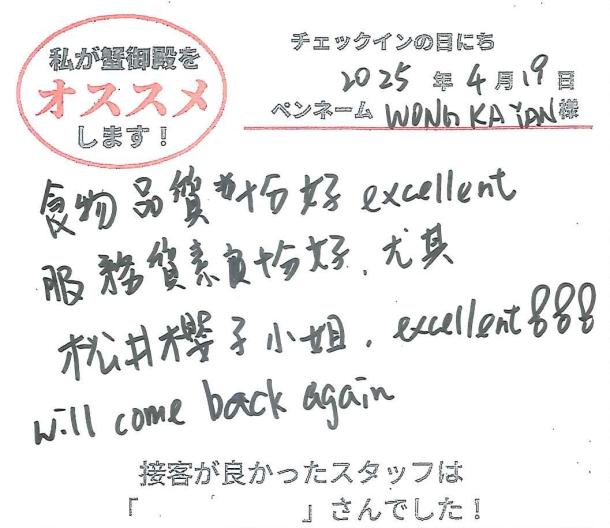 私が蟹御殿を
オススメ
します！
チェックインの日にち
2025年4月19日
ペンネーム WONG KA YAN様
食物品質十分好 excellent
服務質素十分好，尤其
松井櫻子小姐，excellent!!!
will come back again
接客が良かったスタッフは
「 」さんでした！